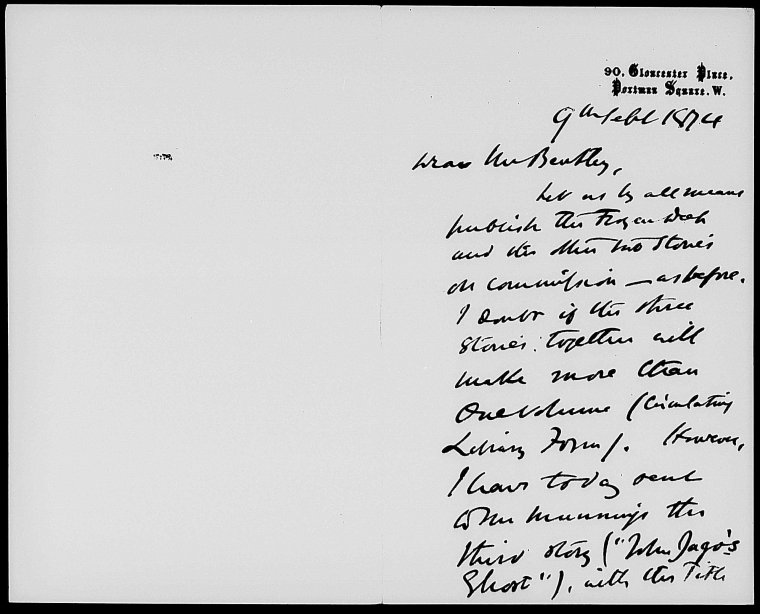 90, Gloucester Place,
Portman Square. W.
9th Sept 1874
Dear Mr Bentley,
Let us by all means
publish the Frozen Deep
and the other two stories
on commission — as before.
I doubt if the three
stories together will
make more than
One volume (Circulating
Library Form). However,
I have today sent
to Mr Munnings the
third story ("John Jago's
Ghost"), with the Title